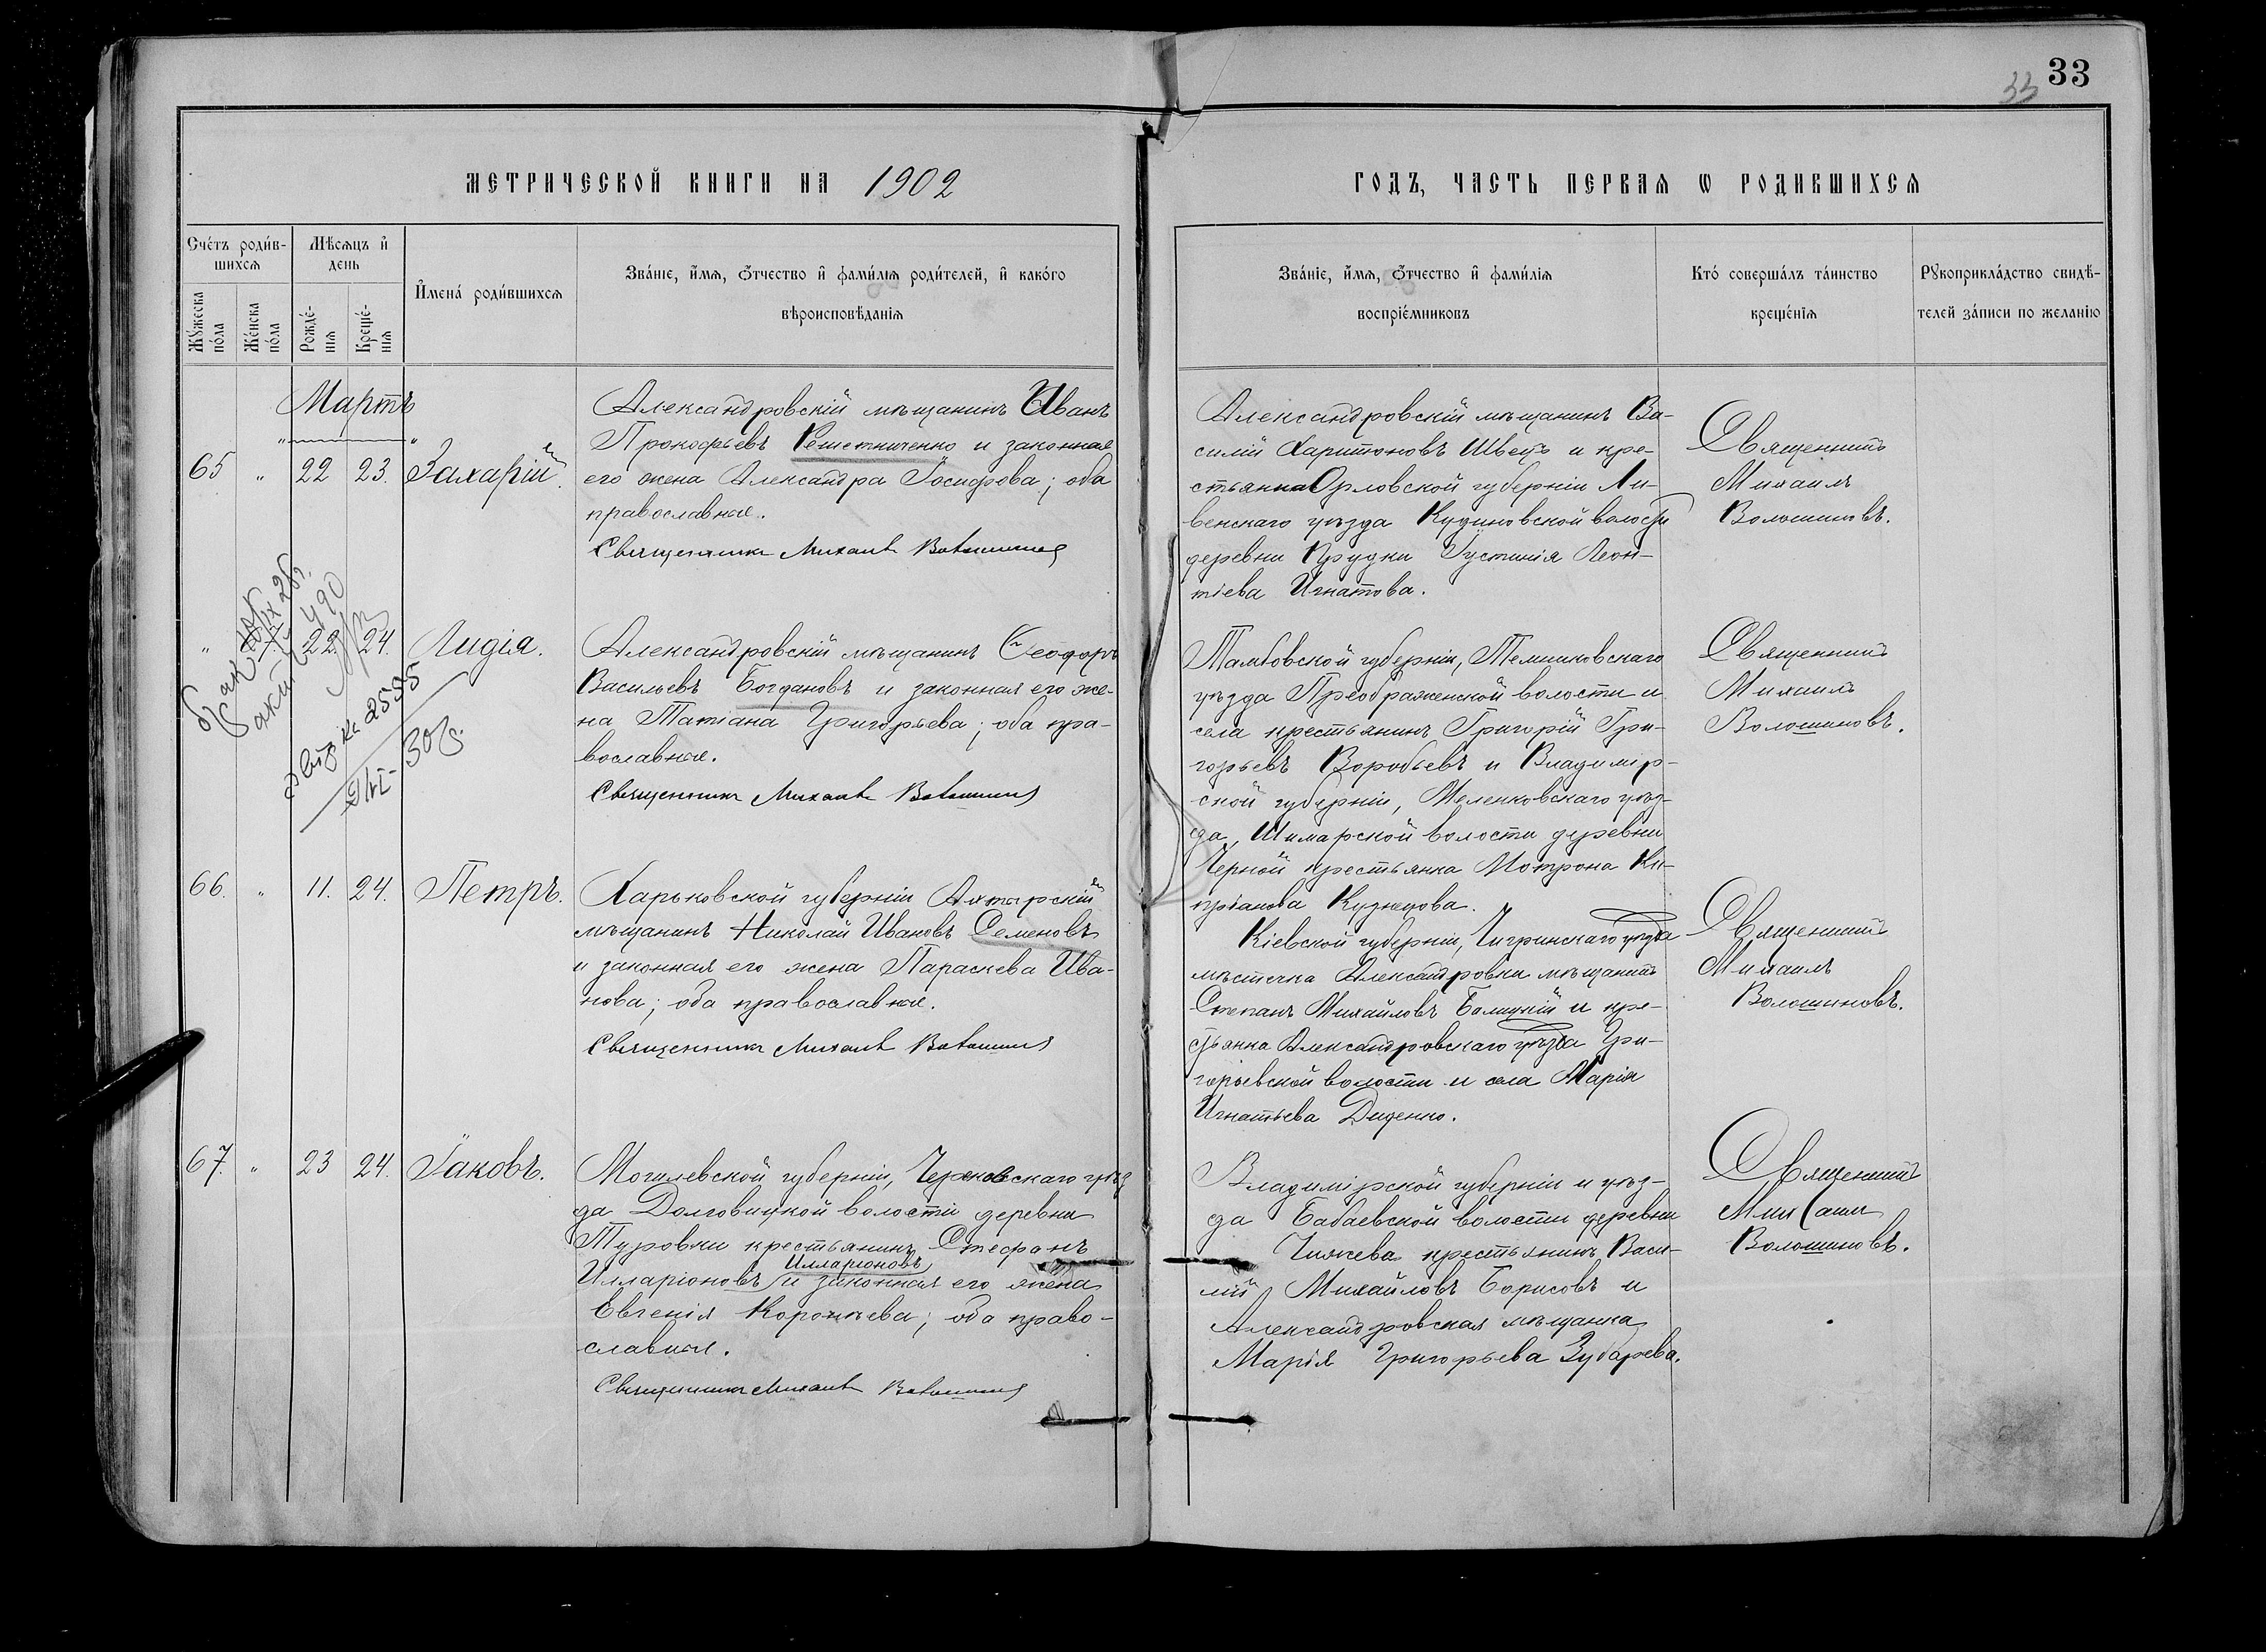 33
33
МЕТРИЧЕСКОЙ КНИГИ НА 1902
ГОДЪ, ЧАСТЬ ПЕРВАЯ Ѡ РОДИВШИХСЯ
Счетъ родив-
шихся
Мужеска
пола
Женска
пола
Мѣсяцъ и
день
Рожде-
нія
Креще-
нія
Имена родившихся
Званіе, имя, отчество и фамилія родителей, и какого
вѣроисповѣданія
Званіе, имя, отчество и фамилія
воспріемниковъ
Кто совершалъ таинство
крещенія
Рукоприкладство свидѣ-
телей записи по желанію
Мартъ
65 " 22 23. Захарій.
Александровскій мѣщанинъ Иванъ
Прокофьевъ Решетниченко и законная
его жена Александра Іосифова; оба
православные.
Священникъ Михаилъ Волошиновъ
Александровскій мѣщанинъ Ва-
силій Харитоновъ Швецъ и кре-
стьянка Орловской губерніи Ли-
венскаго уѣзда Кудиновской волости
деревни Прудки Іустинія Леон-
тіева Игнатова.
Священникъ
Михаилъ
Волошиновъ.
" 22. 24. Лидія.
брак
акт 490
2595
30г.
Александровскій мѣщанинъ Ѳеодоръ
Васильевъ Богдановъ и законная его же-
на Татіана Григорьева; оба пра-
вославные.
Священникъ Михаилъ Волошиновъ
Тамбовской губерніи, Темниковскаго
уѣзда Преображенской волости и
села крестьянинъ Григорій Гри-
горьевъ Воробьевъ и Владимір-
ской губерніи, Меленковскаго уѣз-
да, Шимарской волости деревни
Черной крестьянка Мотрона Ки-
пріанова Кузнецова.
Священникъ
Михаилъ
Волошиновъ.
66. " 11. 24. Петръ.
Харьковской губерніи Ахтырскій
мѣщанинъ Николай Ивановъ Семеновъ
и законная его жена Параскева Ива-
нова; оба православные.
Священникъ Михаилъ Волошиновъ
Кіевской губерніи, Чигринскаго уѣзда
мѣстечка Александровки мѣщанинъ
Степанъ Михайловъ Балицкій и кре-
стьянка Александровскаго уѣзда Гри-
горьевской волости и села Марія
Игнатьева Диденко.
Священникъ
Михаилъ
Волошиновъ.
67. " 23 24. Іаковъ.
Могилевской губерніи, Чериковскаго уѣз
да Долговицкой волости деревни
Туровки крестьянинъ Стефанъ
Илларіоновъ
Илларіоновъ и законная его жена
Евгенія Корнѣева; оба право-
славные.
Священникъ Михаилъ Волошиновъ
Владимірской губерніи и уѣз-
да Бабаевской волости деревни
крестьянинъ Васи-
лій Михайловъ Борисовъ и
Александровская мѣщанка
Марія Григорьева Зубарева.
Священникъ
Михаилъ
Волошиновъ.